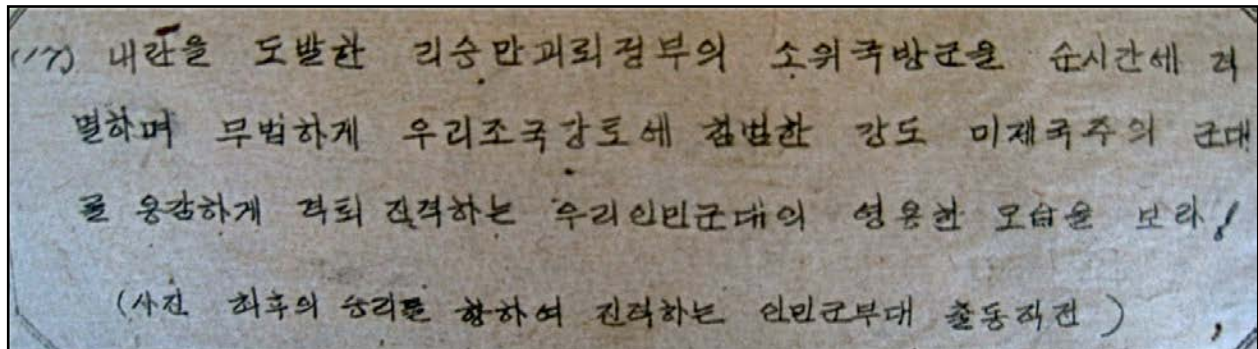 (17) 내란을 도발한 리승만괴뢰정부의 소위국방군을 순시간에 격
멸하며 무법하게 우리조국강토에 침범한 강도 미제국주의 군대
를 용감하게 격퇴 진격하는 우리인민군대의 영용한 모습을 보라!
(사진 최후의 승리를 향하여 진격하는 인민군부대 출동직전)